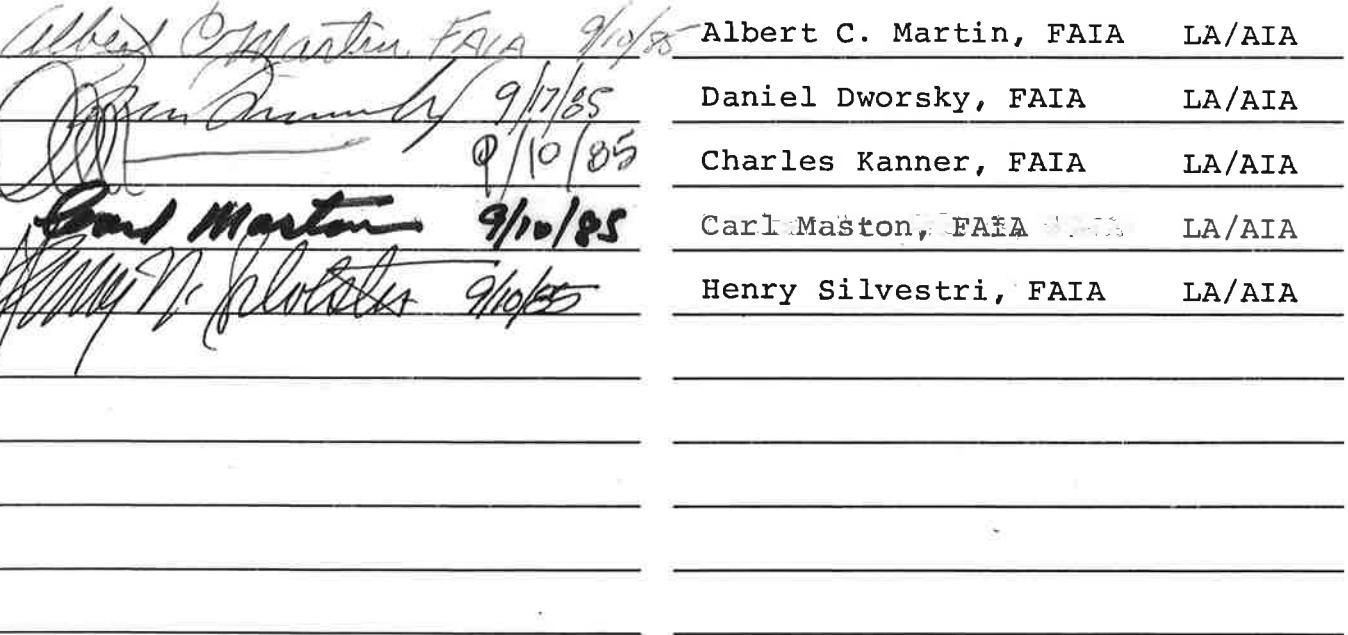 Albert C. Martin, FAIA 9/10/85 Albert C. Martin, FAIA LA/AIA
9/17/85 Daniel Dworsky, FAIA LA/AIA
9/10/85 Charles Kanner, FAIA LA/AIA
Carl Maston 9/10/85 Carl Maston, FAIA LA/AIA
Henry N. Silvestri 9/10/85 Henry Silvestri, FAIA LA/AIA